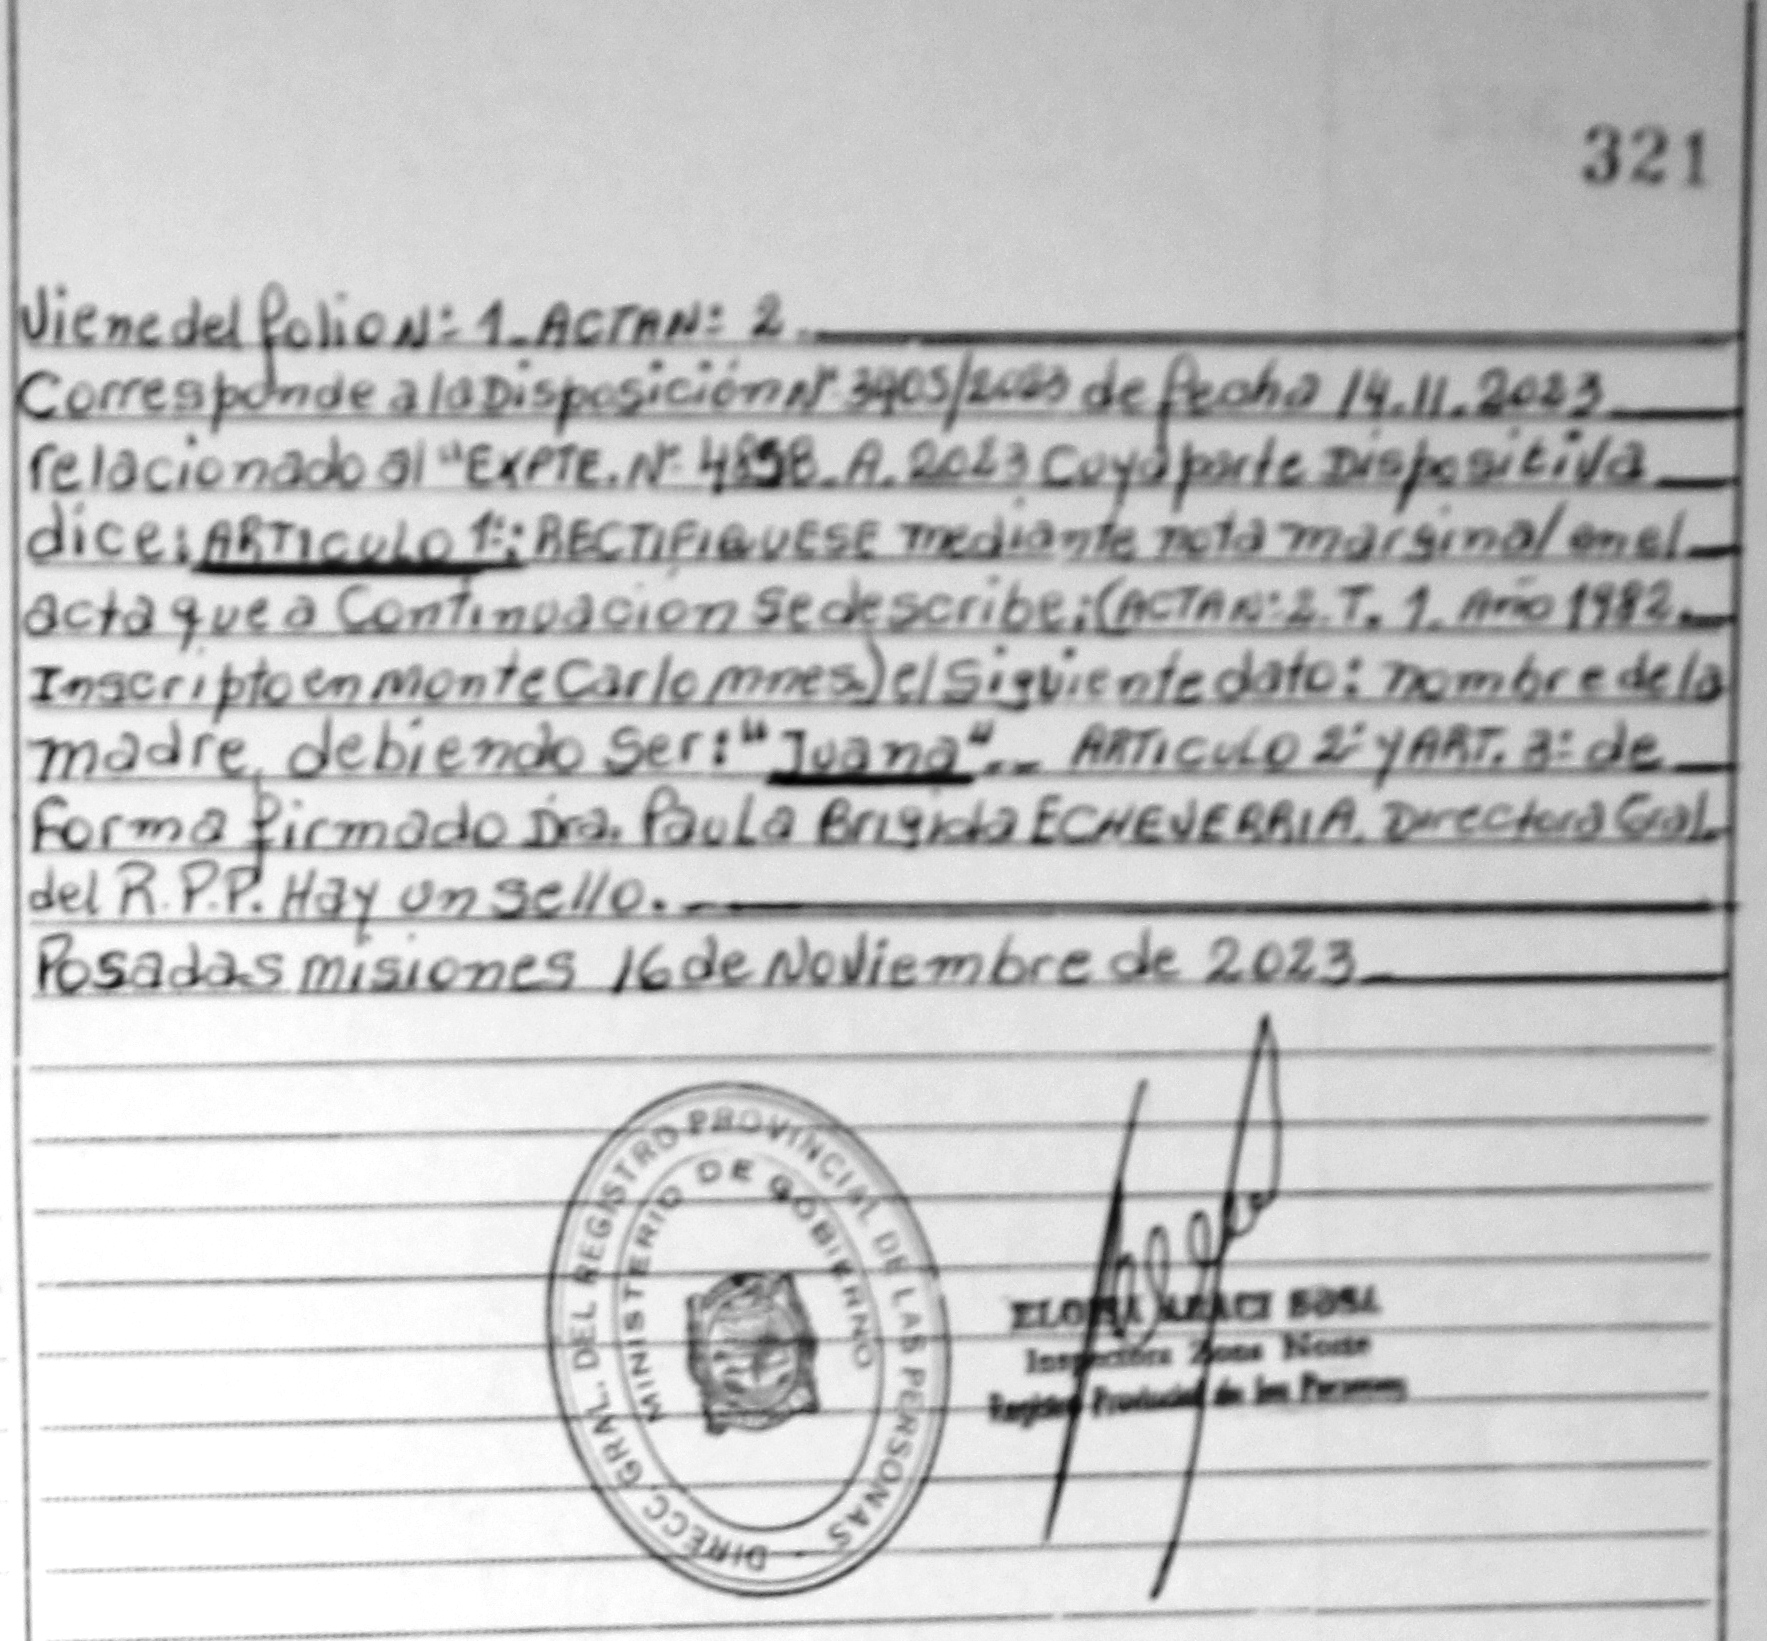 321
Viene del folio Nº: 1_ ACTA Nº: 2
Corresponde a la Disposición Nº 3905/2023 de fecha 14.11.2023
relacionado al "EXPTE. Nº 4898_A. 2023 Cuya parte Dispositiva
dice: ARTICULO 1º: RECTIFIQUESE mediante nota marginal en el
acta que a Continuación se describe: (ACTA Nº: 2. T. 1. Año 1982.
Inscripto en Monte Carlo mnes.) el siguiente dato: nombre de la
madre, debiendo ser: "Juana".__ ARTICULO 2º Y ART. 3º de
forma firmado Dra. Paula Brigida ECHEVERRIA. Directora Gral.
del R.P.P. Hay un sello.
Posadas misiones 16 de Noviembre de 2023
DIRECC. GRAL. DEL REGISTRO PROVINCIAL DE LAS PERSONAS
MINISTERIO DE GOBIERNO
ARACI SOSA
Inspectora Zona Norte
Registro Provincial de las Personas